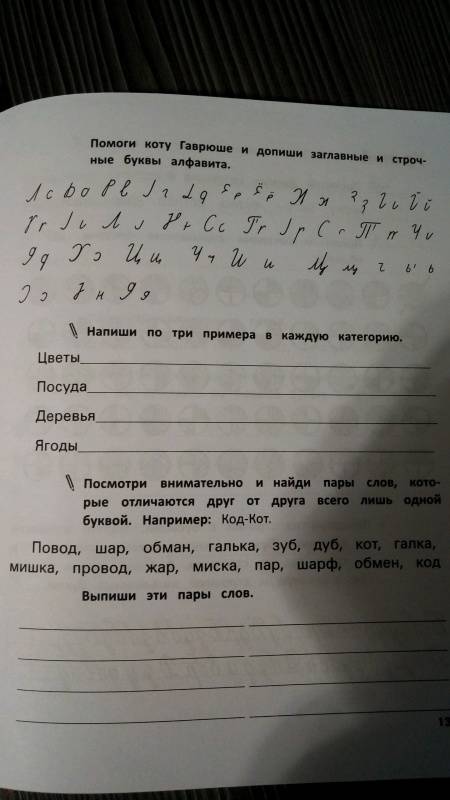 Помоги коту Гаврюше и допиши заглавные и строч-
ные буквы алфавита.
Напиши по три примера в каждую категорию.
Цветы
Посуда
Деревья
Ягоды
Посмотри внимательно и найди пары слов, кото-
рые отличаются друг от друга всего лишь одной
буквой. Например: Код-Кот.
Повод, шар, обман, галька, зуб, дуб, кот, галка,
мишка, провод, жар, миска, пар, шарф, обмен, код
Выпиши эти пары слов.
13